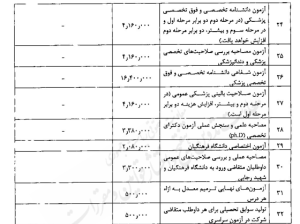 آزمون دانشنامه تخصصی و فوق تخصصی
پزشکی (در مرحله دوم دو برابر مرحله اول و
در مرحله سوم و بیشتر، دو برابر مرحله دوم
افزایش خواهد یافت)
۲۴
۴٫۱۶۰٫۰۰۰
-
آزمون مصاحبه بررسی صلاحیت‌های تخصصی
پزشکی و دندانپزشکی
۲۵
۴٫۱۶۰٫۰۰۰
-
آزمون شفاهی دانشنامه تخصصی و فوق
تخصصی پزشکی
۲۶
۱۶٫۴۰۰٫۰۰۰
-
آزمون صلاحیت بالینی پزشکی عمومی (در
مرحله دوم و بیشتر، افزایش هزینه دو برابر
مرحله اول است)
۲۷
۴٫۱۶۰٫۰۰۰
-
مصاحبه علمی و سنجش عملی آزمون دکترای
تخصصی (ph.D)
۲۸
۳٫۳۸۰٫۰۰۰
-
آزمون اختصاصی دانشگاه فرهنگیان
۲۹
۲٫۰۸۰٫۰۰۰
-
مصاحبه عملی و بررسی صلاحیت‌های عمومی
داوطلبان متقاضی ورود به دانشگاه فرهنگیان و
شهید رجایی
۳۰
۳٫۳۰۰٫۰۰۰
-
آزمون‌های نهایی ترمیم معدل به ازاء
هر درس
۳۱
۵۰۰٫۰۰۰
-
تولید سوابق تحصیلی برای هر داوطلب متقاضی
شرکت در آزمون سراسری
۳۲
۵۰۰٫۰۰۰
-